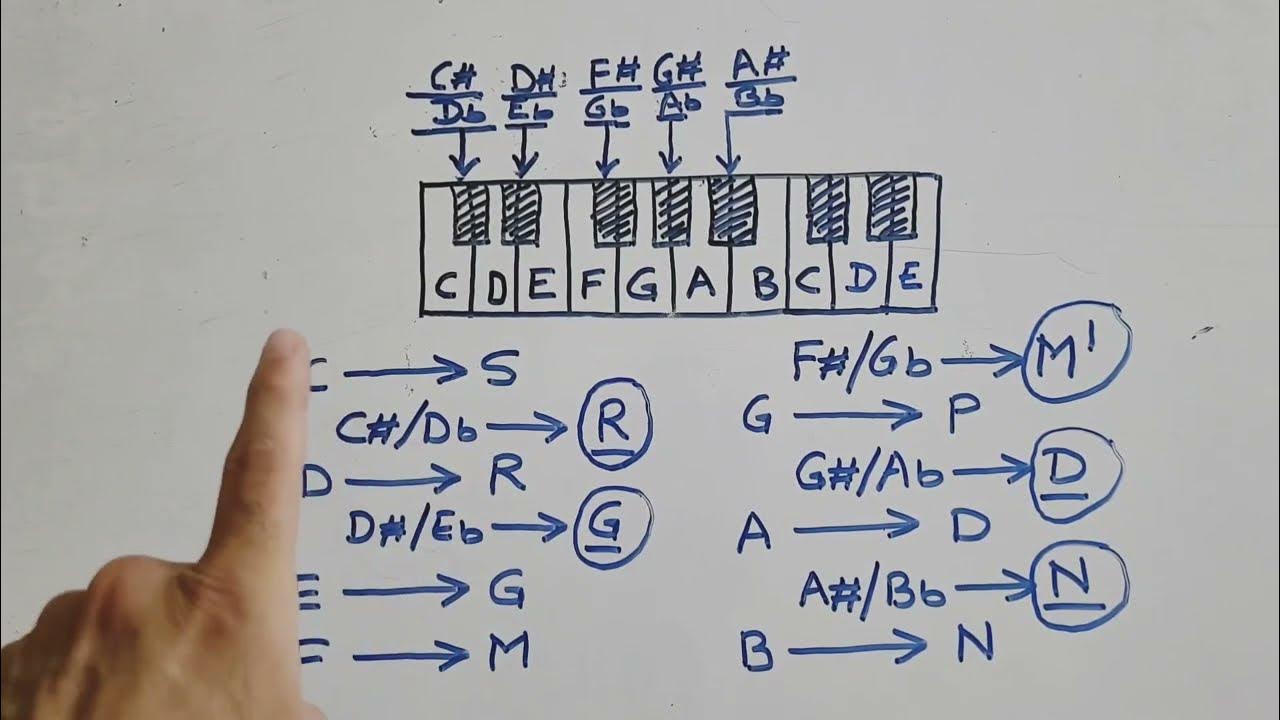 C# D# F# G# A#
Db Eb Gb Ab Bb
C D E F G A B C D E
C → S
C#/Db → R
D → R
D#/Eb → G
E → G
F → M
F#/Gb → M'
G → P
G#/Ab → D
A → D
A#/Bb → N
B → N